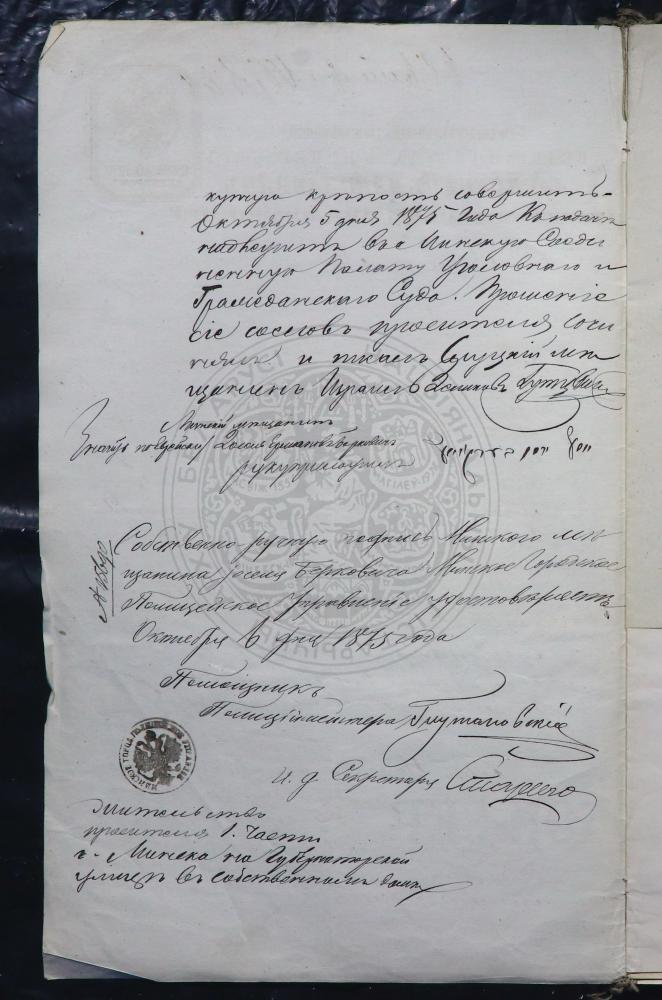 купчую крѣпость совершить.
Октября 5 дня 1875 Года Къ подачѣ
надлежитъ въ Минскую Соеди
ненную Палату Уголовнаго и
Гражданскаго Суда. Прошеніе
сіе со словъ просителя сочи
нялъ и писалъ Слуцкій мѣ
щанинъ Израиль
Минскій мѣщанинъ
Значитъ по Еврейски Іосель Берковичъ
рукуприложилъ
יוסל
Собственно-ручную подпись Минскаго мѣ
щанина Іоселя Берковича Минское Городское
Полицейское Управленіе удостовѣряетъ
Октября 6 дня 1875 года
Помощникъ
Полиціймейстера
И. д. Секретаря
МИНСКОЕ ГОРОД. ПОЛИЦЕЙСКОЕ УПРАВЛЕНІЕ
Жительство
просителя 1. Части
г. Минска на Губернаторской
улицѣ въ собственномъ домѣ